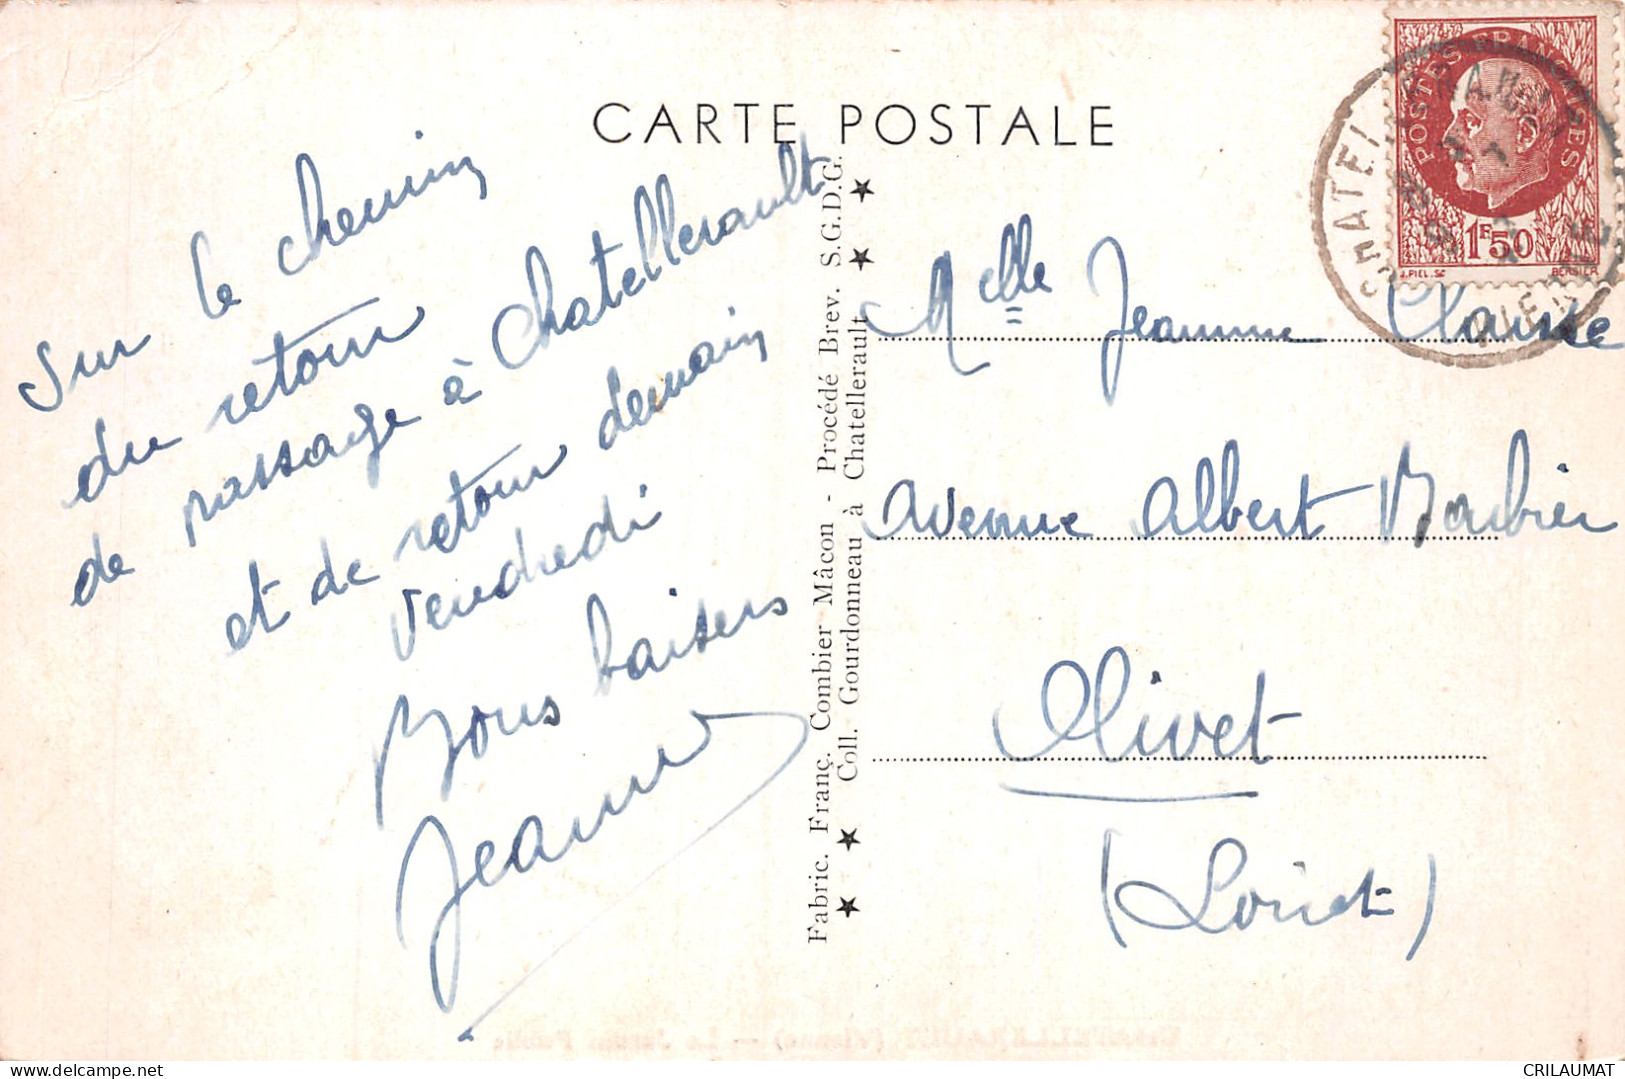 CARTE POSTALE
Sur le chemin
du retour
de passage à Chatellerault
et de retour demain
vendredi
Bons baisers
Jeanne
Fabric. Franç. Combier Mâcon - Procédé Brev. S.G.D.G.
Coll. Gourdonneau à Chatellerault
POSTES FRANÇAISES
1F50
J. PIEL. SC
BERSIER
Melle Jeanne Clause
avenue Albert Barbier
Olivet
(Loiret)
CHATELLERAULT (Vienne) — Le Jardin Public
CRILAUMAT